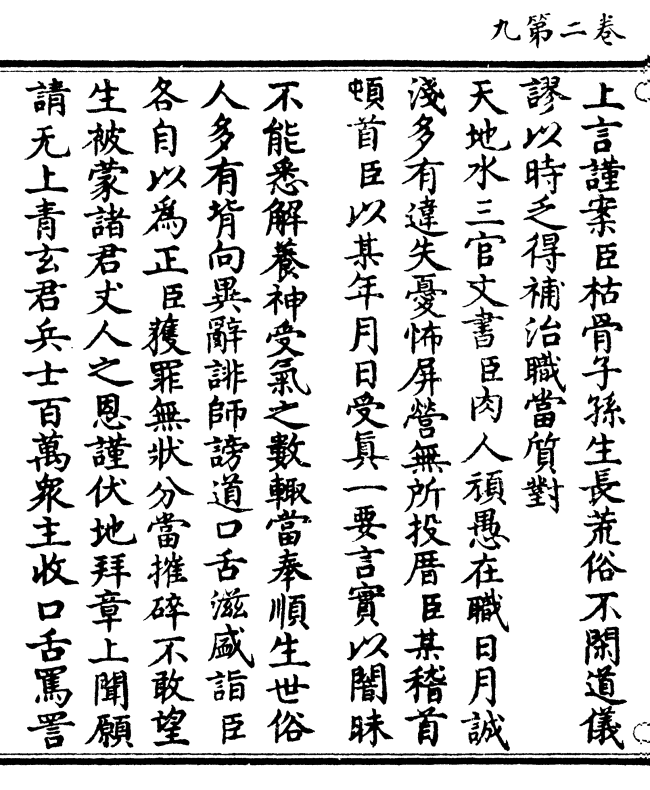 卷二第九
上言謹案臣枯骨子孫生長荒俗不閑道儀
謬以時乏得補治職當質對
天地水三官文書臣肉人頑愚在職日月誠
淺多有違失憂怖屏營無所投厝臣某稽首
頓首臣以某年月日受真一要言實以闇昧
不能悉解養神受氣之數輙當奉順生世俗
人多有背向異辭誹師謗道口舌滋盛詣臣
各自以為正臣獲罪無狀分當摧碎不敢望
生被蒙諸君丈人之恩謹伏地拜章上聞願
請无上青玄君兵士百萬衆主收口舌罵詈